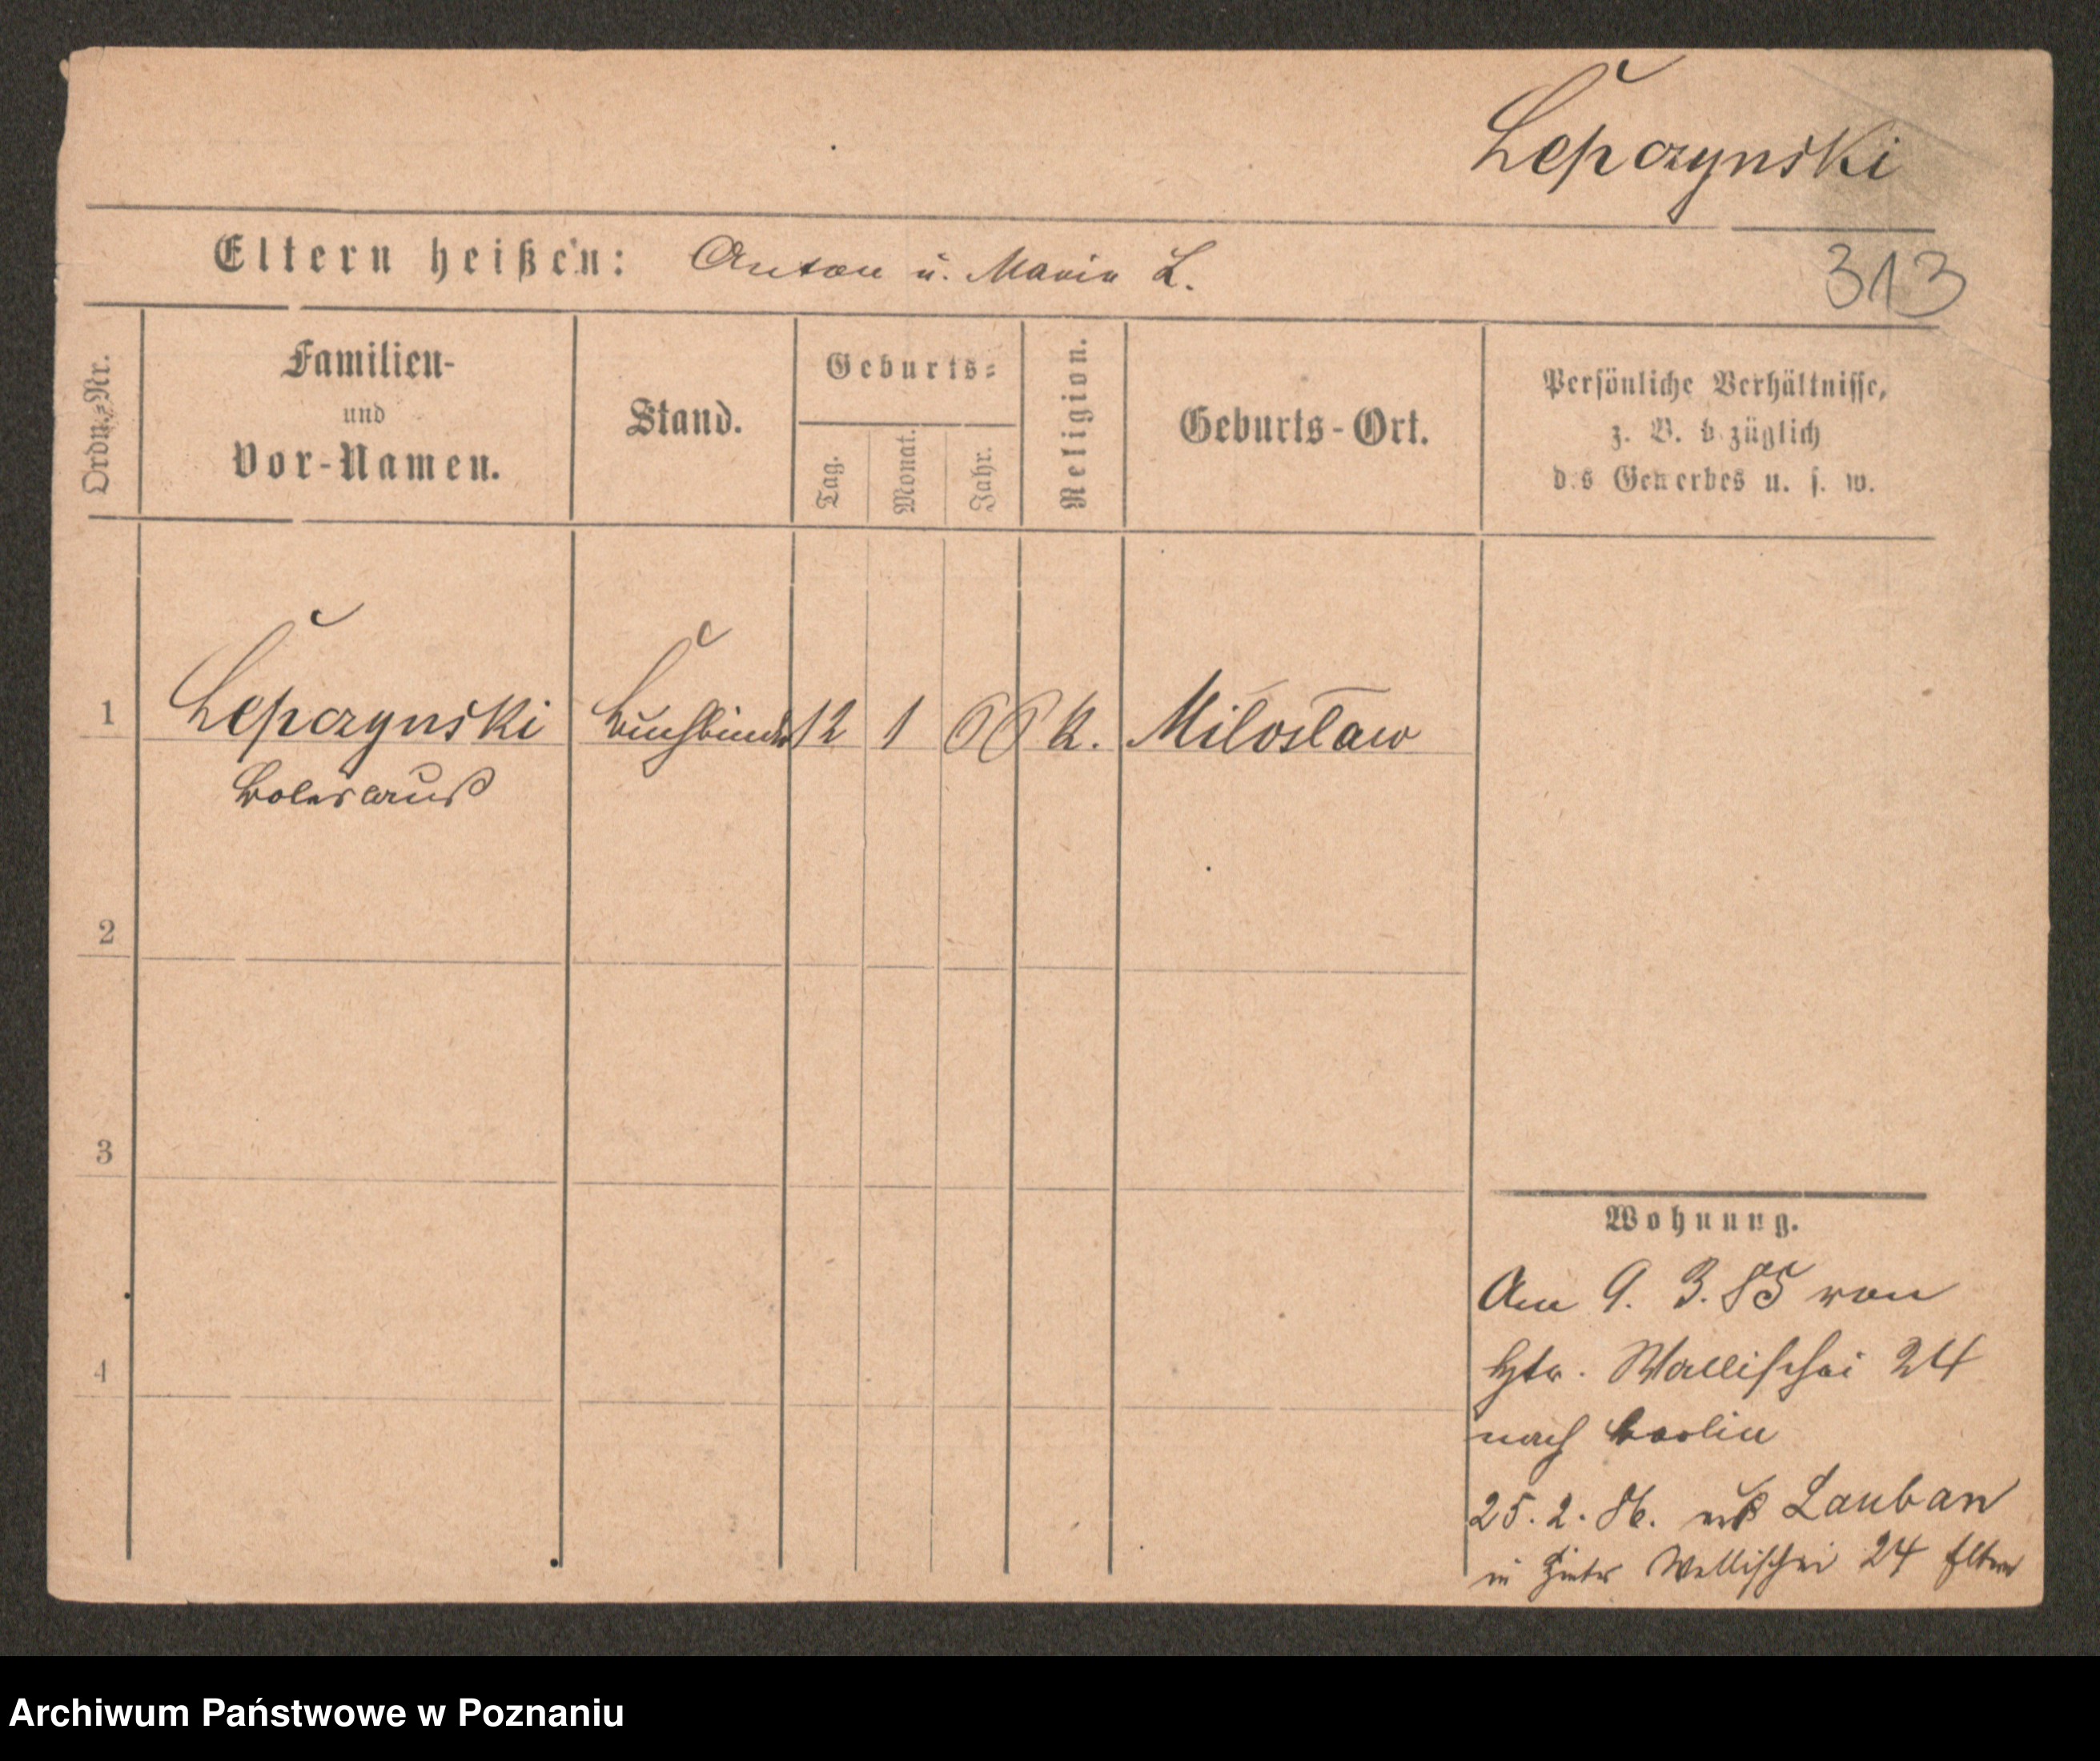 Lepczynski
Eltern heißen: Anton u. Maria L.
313
Ordn.-Nr.
Familien-
und
Vor-Namen.
Stand.
Geburts-
Tag.
Monat.
Jahr.
Religion.
Geburts-Ort.
Persönliche Verhältnisse,
z. B. bezüglich
des Gewerbes u. s. w.
1 Lepczynski Buchbinder 12 1 66 k. Miloslaw
Boleslaus
2
3
4
Wohnung.
Am 9. 3. 85 von
Htr. Wallischei 24
nach Berlin
25. 2. 86. aus Lauban
in Hinter Wallischei 24 Eltern
Archiwum Państwowe w Poznaniu